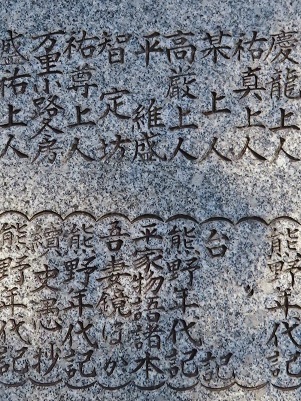 慶龍上人
祐真上人
某上人
高厳上人
平維盛
智定坊
祐尊上人
万里小路冬房
盛祐上人
熊野年代記
〃
台記
熊野年代記
平家物語諸本
吾妻鏡ほか
熊野年代記
續史愚抄
熊野年代記